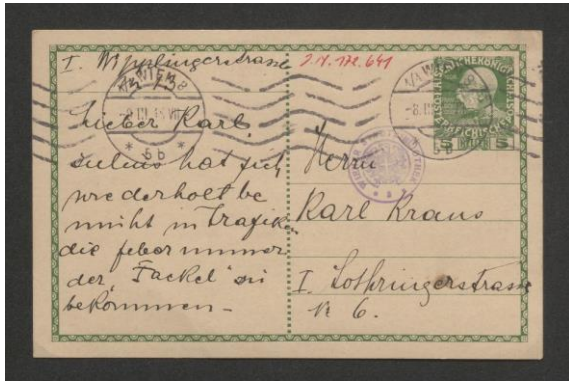 I. Wipplingerstrasse
J.N. 172.641
WIEN
Lieber Karl
Julius hat sich
wiederholt be
müht in Trafiken
die feber nummer
der „Fackel" zu
bekommen –
Herrn
Karl Kraus
I. Lothringerstrasse
№ 6.
5 5